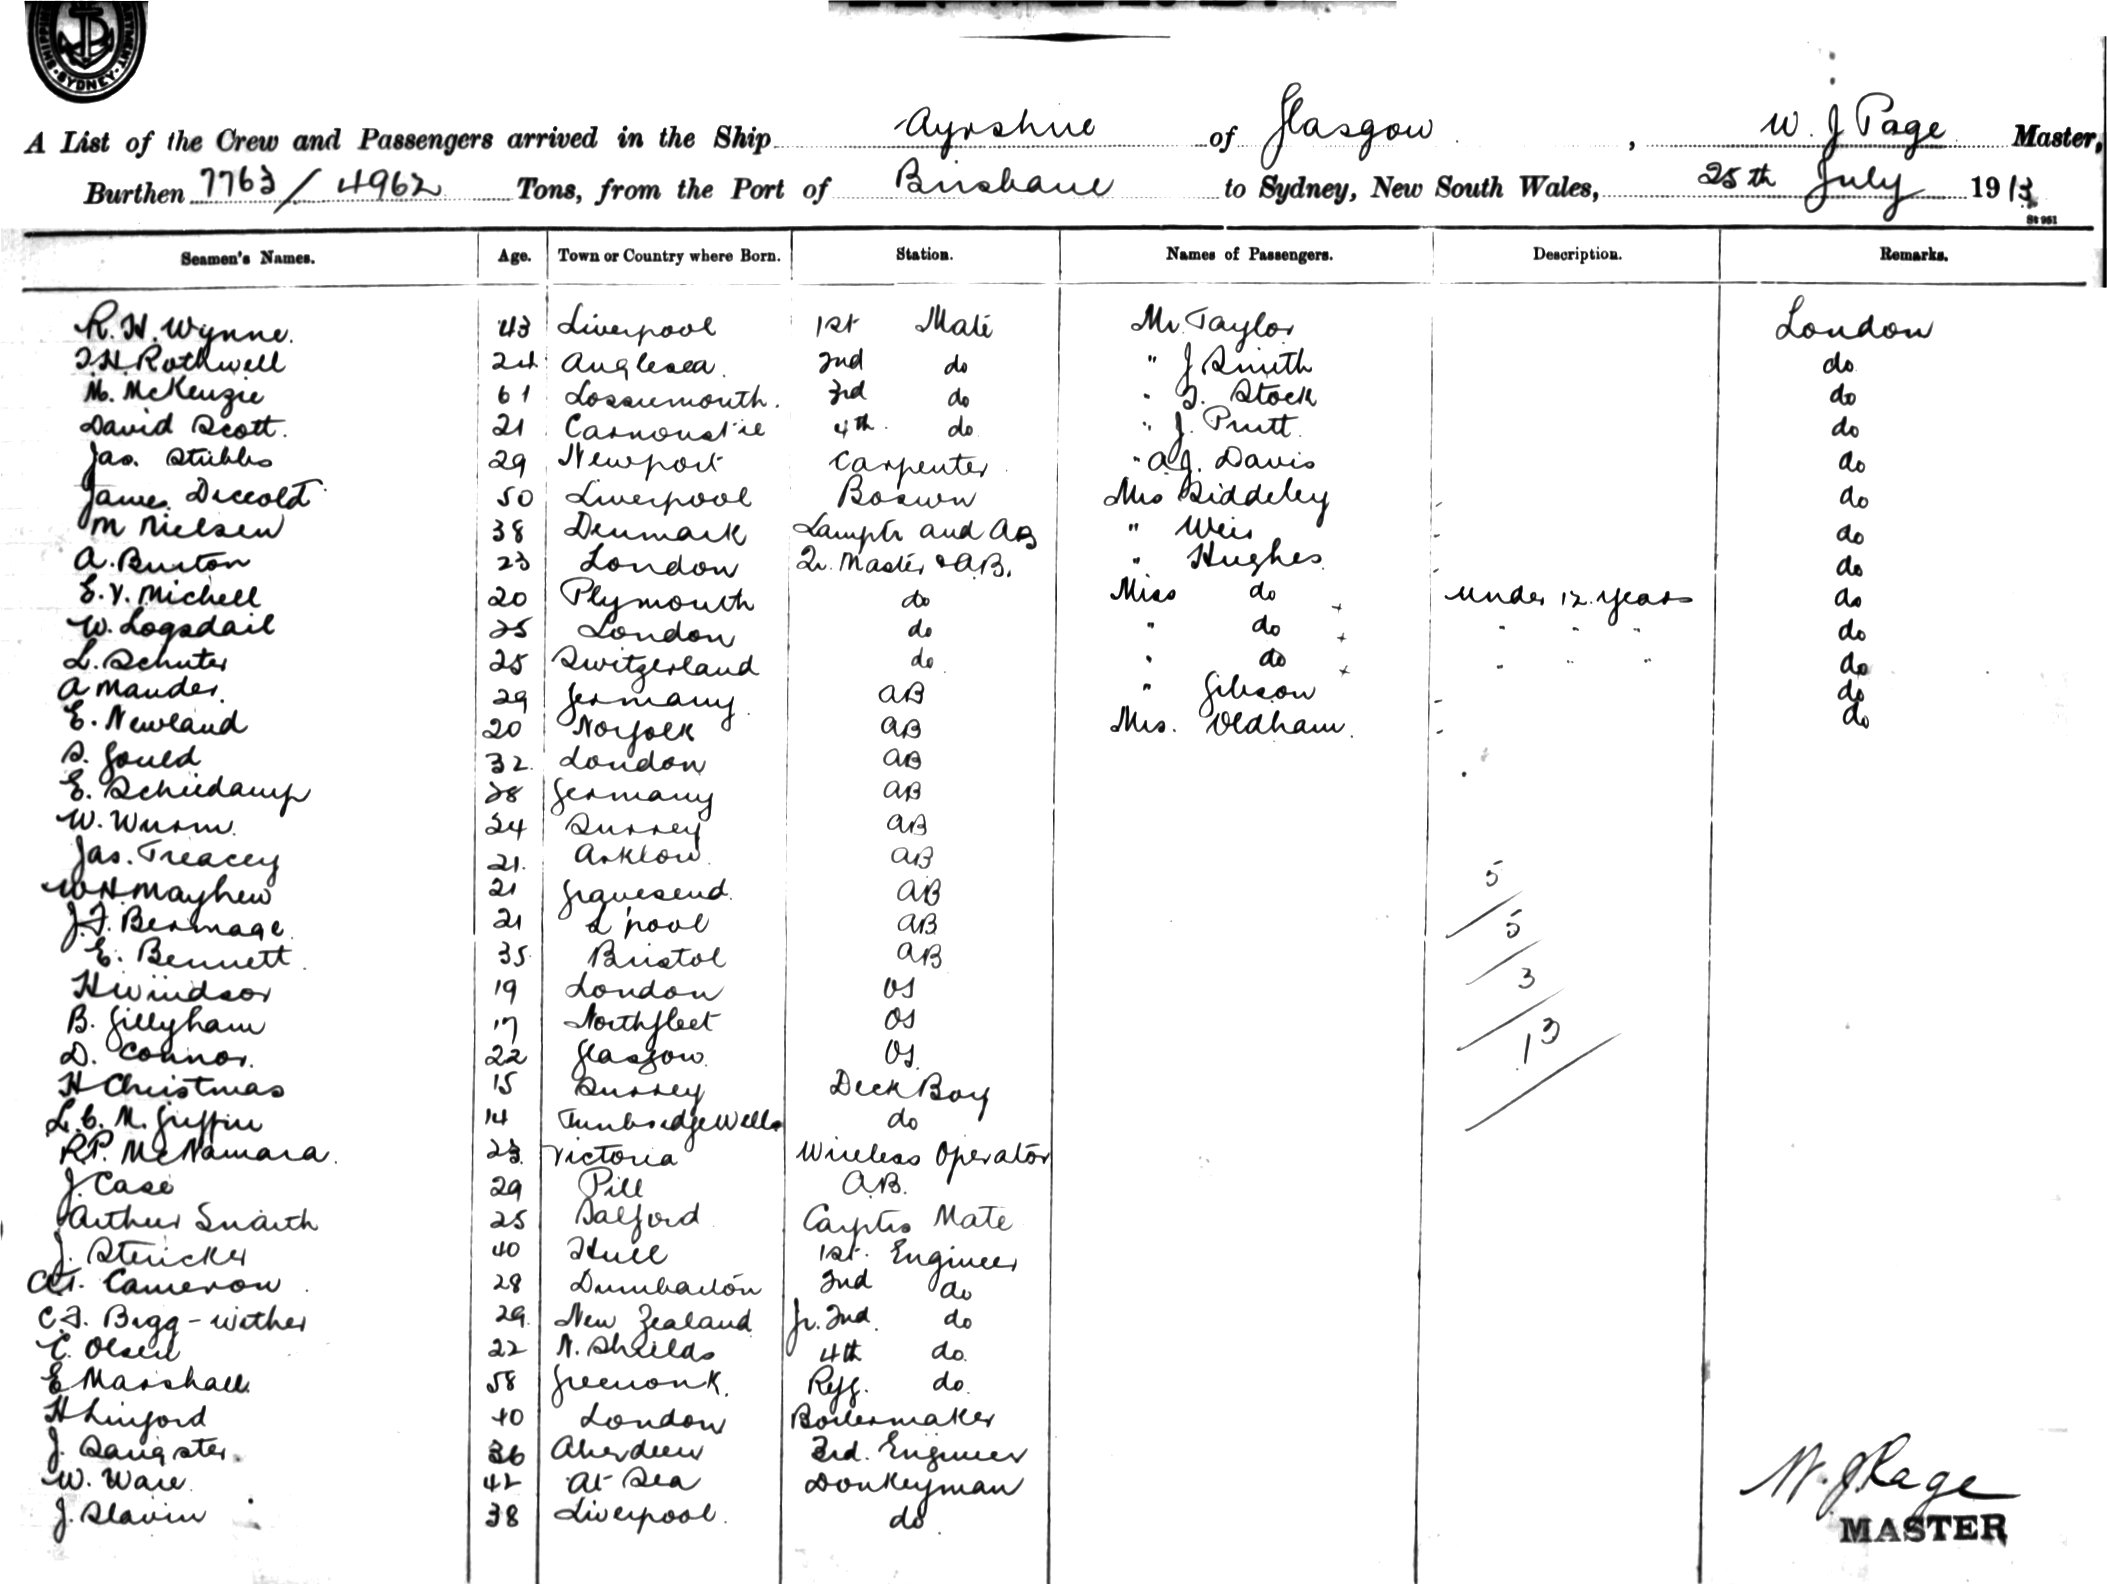 SHIPPING DEPARTMENT SYDNEY
A List of the Crew and Passengers arrived in the Ship Ayrshire of Glasgow, W. J Page Master,
Burthen 7763/4962 Tons, from the Port of Brisbane to Sydney, New South Wales, 25th July 1913
St 951
Seamen's Names. Age. Town or Country where Born. Station. Names of Passengers. Description. Remarks.
R. H. Wynne. 43 Liverpool 1st Mate Mr. Taylor London
T. H. Rothwell 24 Anglesea. 2nd do " J Smith do
M. McKenzie 61 Lossiemouth. 3rd do " T. Stock do
David Scott. 21 Carnoustie 4th do " J. Prutt. do
Jas. Stubbs 29 Newport Carpenter " A. J. Davis do
James 50 Liverpool Boswn Mrs Siddeley do
M Nielsen 38 Denmark Lamptr and AB " Weir do
A. Burton 23 London Qr. Master & A.B. " Hughes do
E. V. Michell 20 Plymouth do Miss do under 12 years do
W. Logsdail 25 London do " do + " " " do
L. Schuter 25 Switzerland do " do + " " " do
A Mander. 29 Germany. AB " Gibson do
E. Newland 20 Norfolk AB Mrs. Oldham. do
S. Gould 32 London AB
E. Schiedamp 28 Germany AB
W. Wurm. 24 Surrey AB
Jas. Treacey 21. Arklow. AB
W H Mayhew 21 Gravesend. AB 5
J. F. Bermage. 21 L'pool AB 5
E. Bennett. 35 Bristol AB
H Windsor 19 London OS 3
B. Gillyham 17 Northfleet OS
D. Connor. 22 Glasgow. OS. 13
H Christmas 15 Surrey Deck Boy
L. C. M. Griffin 14 Tunbridge Wells do
R.P. McNamara. 23. Victoria Wireless Operator
J. Case 29 Pill A.B.
Arthur Snaith 25 Salford Carptrs Mate
J. Stericker 40 Hull 1st. Engineer
A.T. Cameron 28 Dumbarton 2nd do
C. F. Bigg-wither 29. New Zealand Jr. 2nd. do
C. Olsen 22 N. Shields 4th do.
E Marshall. 58 Greenock. Refg. do.
H Linford 40 London Boilermaker
J. Sangster. 36 Aberdeen 3rd. Engineer
W. Ware. 42 At Sea Donkeyman
J. Slavin 38 Liverpool. do
W. J Page
MASTER